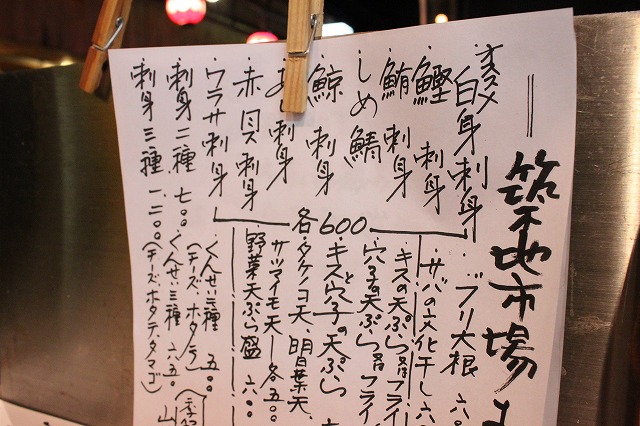 築地市場
オススメ
・白身刺身
・鰹 刺身
・鮪 刺身
・しめ鯖
・鯨 刺身
刺身
・赤貝刺身
・ワラサ刺身
各600
・刺身二種 七〇〇
・刺身三種 一、二〇〇
・ブリ大根 六〇
・サバの文化干し 六
・キスの天ぷら又はフライ
・穴子の天ぷら又はフライ
・キスと穴子の天ぷら
・タケノコ天、明日葉天、
サツマイモ天 各五〇
・野菜天ぷら盛 六〇〇
・くんせい二種 五〇〇
(チーズ、ホタテ)
・くんせい三種 六五〇
(チーズ、ホタテ、タマゴ)
山